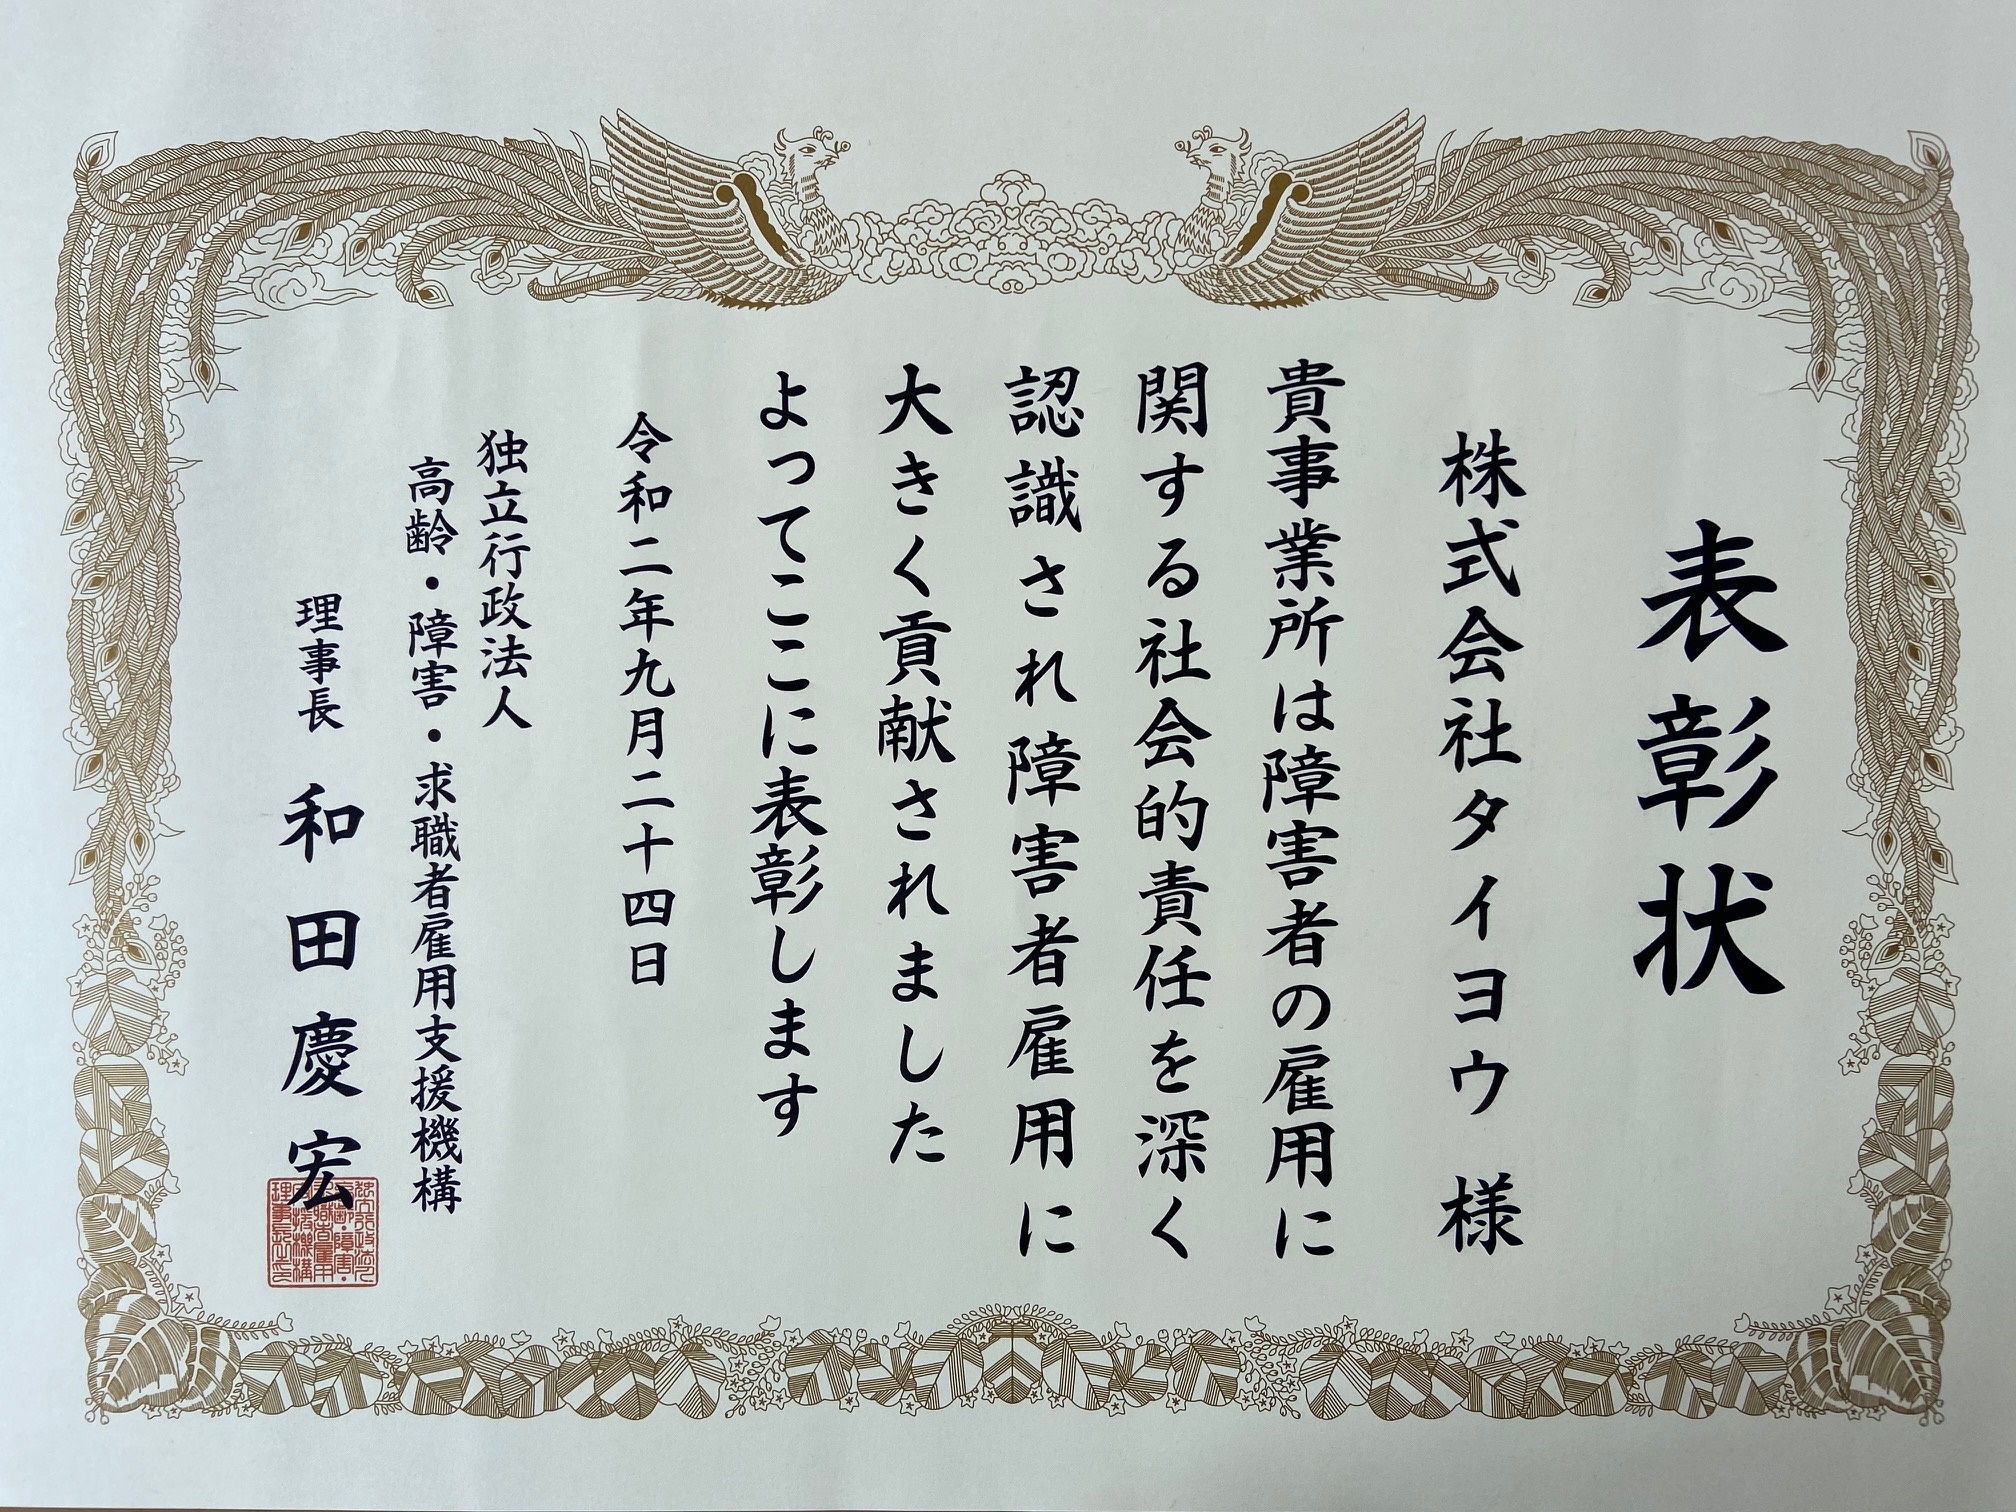 表彰状
株式会社タイヨウ 様
貴事業所は障害者の雇用に
関する社会的責任を深く
認識され障害者雇用に
大きく貢献されました
よってここに表彰します
令和二年九月二十四日
独立行政法人
高齢・障害・求職者雇用支援機構
理事長 和田慶宏
独立行政法人
高齢・障害・
求職者雇用
支援機構
理事長之印